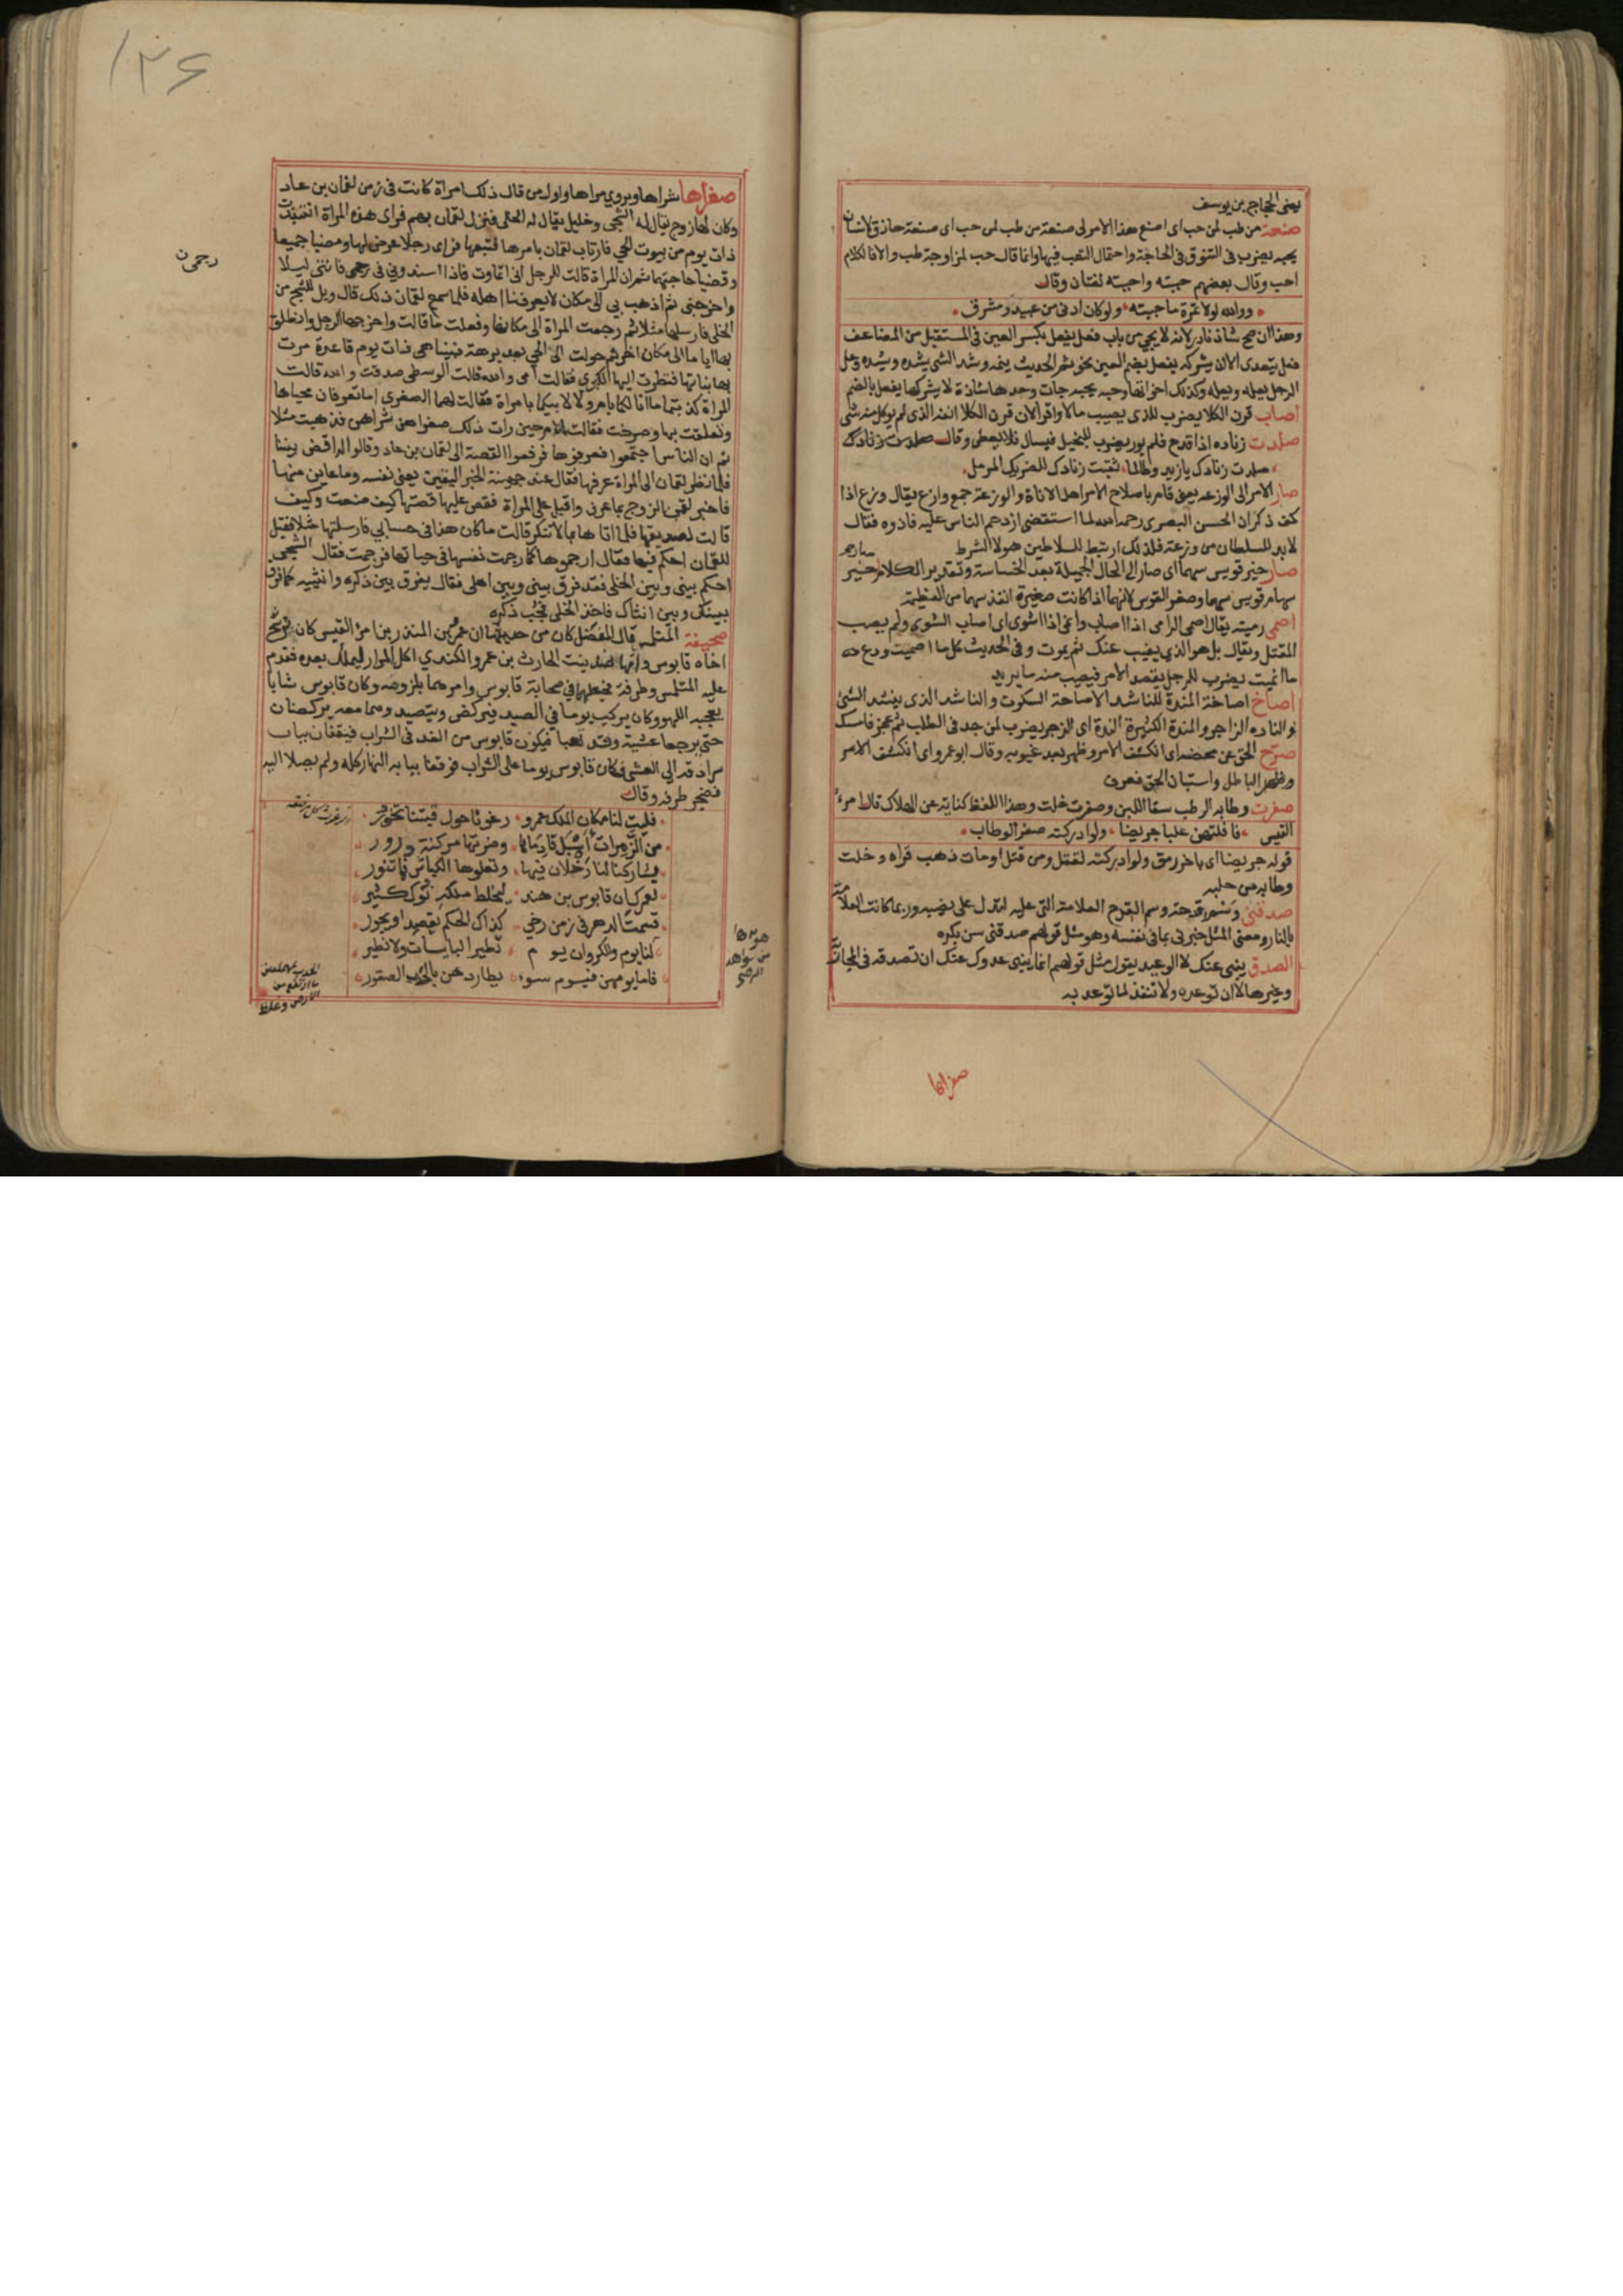 يعنى الحجاج بن يوسف
صنعة من طب لمن حب اى اصنع هذا الامر لى صنعة من طب لمن حب اى صنعة حاذق لانسان
يحبه يضرب فى التنوق فى الحاجة واحتمال التعب فيها وانما قال حب لمزاوجة طب والا فالكلام
احب وقال بعضهم حببته واحببته لغتان وقال
ووالله لولا تمره ما حببته ولو كان ادنى من عبيد ومشرق
وهذا ان صح شاذ نادر لانه لا يجئ من باب فعل يفعل بكسر العين فى المستقبل من المضاعف
فعل يتعدى الا ان يشركه يفعل بضم العين نحو نم الحديث ينمه وشد الشى يشده ويشده وعل
الرجل يعله ويعله وكذلك اخواتها وحبه يحبه جات وحدها شاذة لا يشركها يفعل بالضم
اصاب قرن الكلا يضرب للذى يصيب مالا وافرا لان قرن الكلا انفه الذى لم يوكل منه شى
صلدت زناده اذا قدح فلم يور يضرب للبخيل يسال فلا يعطى وقال صلدت زنادك
صلدت زنادك يا يزيد وطالما ثقبت زنادك للضريك المرمل
صار الامر الى الوزعة يعنى قام باصلاح الامر اهل الاناة والوزعة جمع وازع يقال وزع اذا
كف ذكر ان الحسن البصرى رحمه الله لما استقضى ازدحم الناس عليه فاذوه فقال
لا بد للسلطان من وزعة فلذلك ارتبط السلاطين هولا الشرط
صار خير قويس سهما اى صار الى الحال الجميلة بعد الخساسة وتقدير الكلام خير
سهام قويس سهما وصغر القوس لانها اذا كانت صغيرة انفذ سهما من العظيمة
اصمى رميته يقال اصمى الرامى اذا اصاب وانمى اذا اشوى اى اصاب الشوى ولم يصب
المقتل ويقال بل هو الذى يغيب عنك ثم يموت وفى الحديث كل ما اصميت ودع
ما انميت يضرب للرجل يقصد الامر فيصيب منه ما يريد
اصاخ اصاخة المندة للناشد الاصاخة السكوت والناشد الذى ينشد الشئ
والناده الزاجر والمندة الكثيرة الندة اى الزجر يضرب لمن جد فى الطلب ثم عجز فامسك
صرح الحق عن محضه اى انكشف الامر وظهر بعد غيوبه وقال ابو عمرو اى انكشف الامر
وظهر الباطل واستبان الحق فعرف
صفرت وطابه الوطب سقا اللبن وصفرت خلت وهذا اللفظ كناية عن الهلاك قال امرء
القيس فافلتهن علبا جريضا ولو ادركنه صفر الوطاب
قوله جريضا اى باخر رمق ولو ادركنه لقتل ومن قتل او مات ذهب قراه وخلت
وطابه من حلبه
صدقنى وسم قدحه وسم القدح العلامة التى عليه لتدل على نصيبه وربما كانت العلامة
بالنار ومعنى المثل خبرنى بما فى نفسه وهو مثل قولهم صدقنى سن بكره
الصدق ينبى عنك لا الوعيد يقول مثل قولهم انما ينبى عدوك عنك ان تصدقه فى
وغيرها لا ان توعده ولا تنفذ لما توعد به
صغراها
۱۲۶
صغراها شراها ويروى مراها واول من قال ذلك امراة كانت فى زمن لقمان بن عاد
وكان لها زوج يقال له الشجى وخليل يقال له الخلى فنزل لقمان بهم فراى هذه المراة انتبذت
ذات يوم من بيوت الحي فارتاب لقمان بامرها فتبعها فراى رجلا عرض لها ومضيا جميعا
وقضيا حاجتهما ثم ان المراة قالت للرجل انى اتماوت فاذا اسندونى فى رجمى فائتنى ليلا
واخرجنى ثم اذهب بي الى مكان لا يعرفنا اهله فلما سمع لقمان ذلك قال ويل للشجى من
الخلى فارسلها مثلا ثم رجعت المراة الى مكانها وفعلت ما قالت واخرجها الرجل وانطلق
بها اياما الى مكان اخر ثم حولت الى الحي بعد برهة فبينا هى ذات يوم قاعدة مرت
بها بناتها فنظرت اليها الكبرى فقالت امى والله قالت الوسطى صدقت والله قالت
المراة كذبتما ما انا لكما بام ولا لابيكما بامراة فقالت لهما الصغرى اما تعرفان محياها
وتعلقت بها وصرخت فقالت الام حين رات ذلك صغراهن شراهن فذهبت مثلا
ثم ان الناس اجتمعوا فعرفوها فرفعوا القصة الى لقمان بن عاد وقالوا له اقض بيننا
فلما نظر لقمان الى المراة عرفها فقال عند جهينة الخبر اليقين يعنى نفسه وما عاين منها
فاخبر لقمن الزوج بما عرف واقبل على المراة فقص عليها قصتها كيف صنعت وكيف
قالت لصديقها فلما اتاها بما لا تنكر قالت ما كان هذا فى حسابى فارسلتها مثلا فقيل
للقمان احكم فيها فقال ارجموها كما رجمت نفسها فى حياتها فرجمت فقال الشجى
احكم بينى وبين الخلى فقد فرق بينى وبين اهلى فقال يفرق بين ذكره وانثييه كما فرق
بينك وبين انثاك فاخذ الخلى فجب ذكره
صحيفة المتلمس قال المفضل كان من حديثها ان عمرو بن المنذر بن امرئ القيس كان يرشح
اخاه قابوس وامهما هند بنت الحارث بن عمرو الكندي اكل المرار ليملك بعده فقدم
عليه المتلمس وطرفة فجعلهما فى صحابة قابوس وامرهما بلزومه وكان قابوس شابا
يعجبه اللهو وكان يركب يوما فى الصيد فيركض ويتصيد وهما معه يركضان
حتى يرجعا عشية وقد تعبا فيكون قابوس من الغد فى الشراب فيقفان بباب
سرادقه الى العشى فكان قابوس يوما على الشراب فوقفا ببابه النهار كله ولم يصلا اليه
فضجر طرفه وقال
فليت لنا مكان الملك عمرو رغوثا حول قبتنا تخور
من الزمرات اسبل قادماها وضرتها مركنة درور
يشاركنا لنا رخلان فيها وتعلوها الكباش فما تنور
لعمرك ان قابوس بن هند ليخلط ملكه نوك كثير
قسمت الدهر فى زمن رخي كذاك الحكم يقصد او يجور
لنا يوم وللكروان يوم تطير البايسات ولا نطير
فاما يومهن فيوم سوء يطاردهن بالحدب الصقور
رجمى ن
هو
من شواهد
الرضى
الحدب
ما ارتفع من
الارض وغلظ